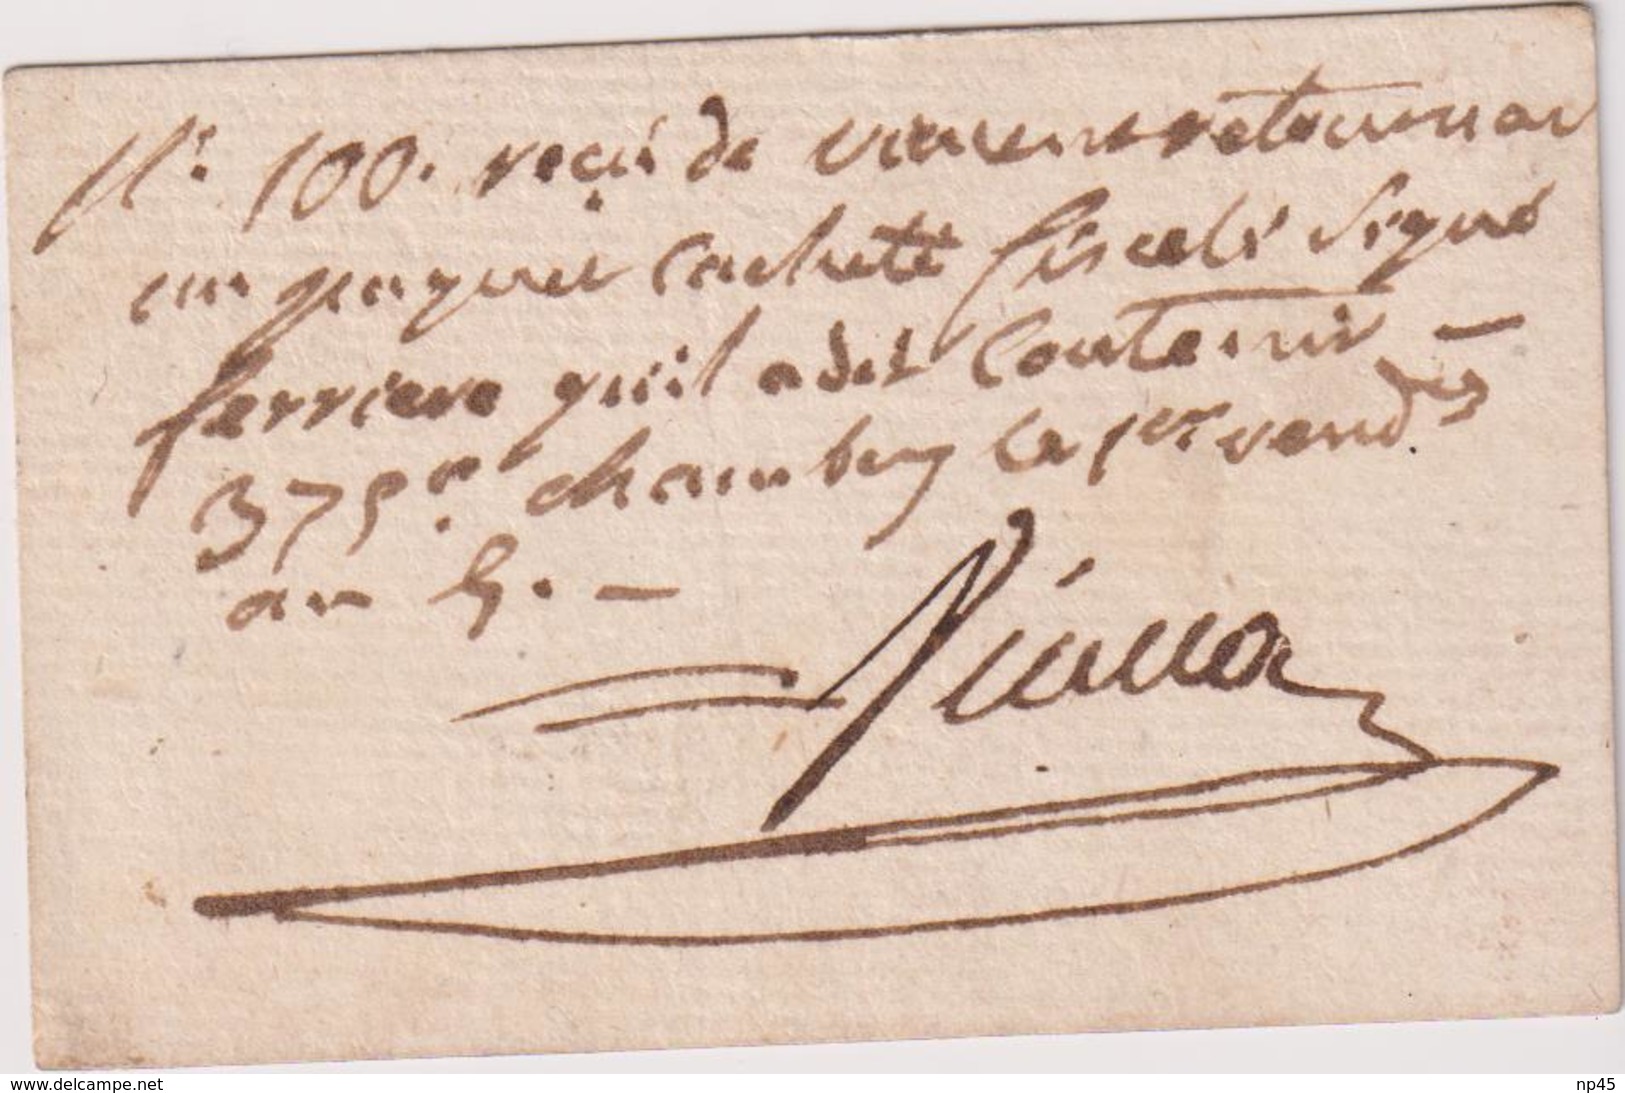 N° 100. reçu de
un paquet cacheté ficelé signé
ferriere qu'il a dit contenir —
375# chambery le 1er vend.re
an 5. —
www.delcampe.net
np45